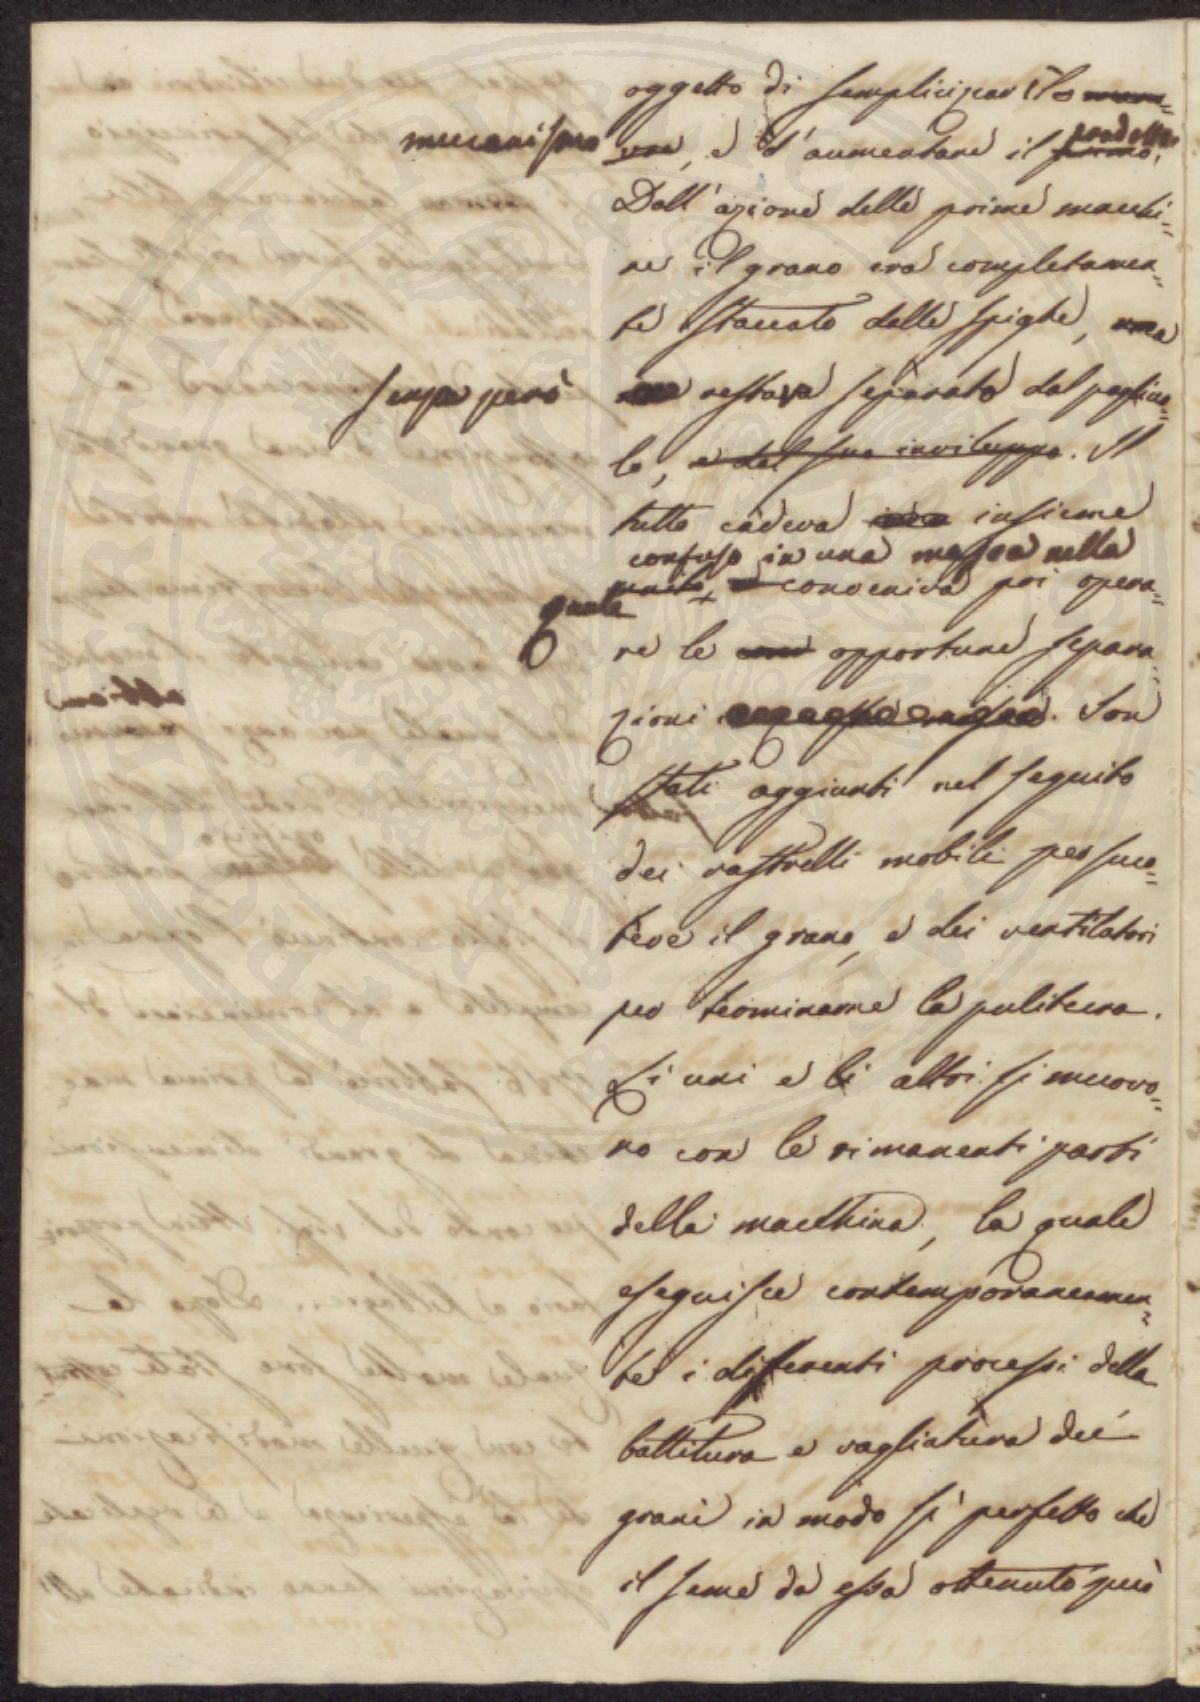 oggetto di semplicizzar il
meccanismo, e d'aumentare il prodotto.
Dall'azione delle prime macchi=
ne il grano era completamen=
te staccato dalle spighe,
senza però restava separato dal pagliuo=
lo, e del suo inviluppo. Il
tutto cadeva insieme
confuso in una massa nella
quale conveniva poi opera=
re le opportune separa=
zioni. Son
stati aggiunti nel seguito
dei rastrelli mobili per scuo=
tere il grano, e dei ventilatori
per terminarne la pulitura.
Li uni e li altri si muovo=
no con le rimanenti parti
della macchina, la quale
eseguisce contemporaneamen=
te i differenti processi della
battitura e vagliatura dei
grani in modo sì perfetto che
il seme da essa ottenuto può